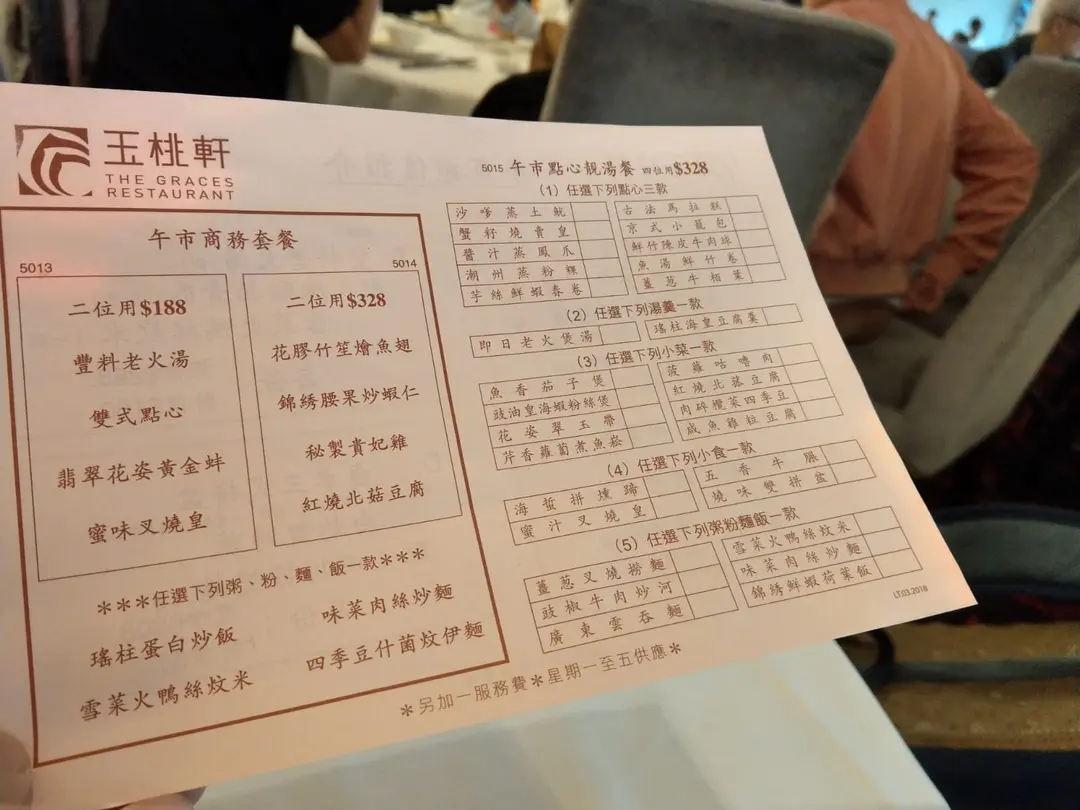 玉桃軒
THE GRACES
RESTAURANT
午市商務套餐
5013
二位用$188
豐料老火湯
雙式點心
翡翠花姿黃金蚌
蜜味叉燒皇
5014
二位用$328
花膠竹笙燴魚翅
錦綉腰果炒蝦仁
秘製貴妃雞
紅燒北菇豆腐
***任選下列粥、粉、麵、飯一款***
瑤柱蛋白炒飯
味菜肉絲炒麵
雪菜火鴨絲炆米
四季豆什菌炆伊麵
5015 午市點心靚湯餐 四位用$328
(1) 任選下列點心三款
沙嗲蒸土魷
古法馬拉糕
蟹籽燒賣皇
京式小籠包
醬汁蒸鳳爪
鮮竹陳皮牛肉球
潮州蒸粉粿
魚湯鮮竹卷
芋絲鮮蝦春卷
薑葱牛栢葉
(2) 任選下列湯羹一款
即日老火煲湯
瑤柱海皇豆腐羹
(3) 任選下列小菜一款
魚香茄子煲
菠蘿咕嚕肉
豉油皇海蝦粉絲煲
紅燒北菇豆腐
花姿翠玉帶
肉碎欖菜四季豆
芹香蘿蔔煮魚崧
咸魚雞粒豆腐
(4) 任選下列小食一款
海蜇拼燻蹄
五香牛𦟌
蜜汁叉燒皇
燒味雙拼盆
(5) 任選下列粥粉麵飯一款
薑葱叉燒撈麵
雪菜火鴨絲炆米
豉椒牛肉炒河
味菜肉絲炒麵
廣東雲吞麵
錦綉鮮蝦荷葉飯
LT.03.2018
*另加一服務費*星期一至五供應*